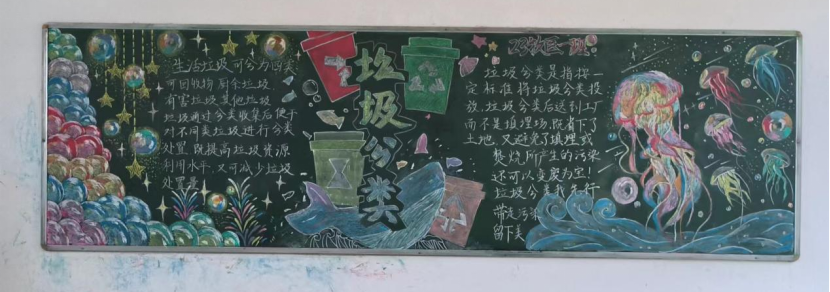 生活垃圾可分为四类
可回收物 厨余垃圾
有害垃圾 其他垃圾
垃圾通过分类收集后便于
对不同类垃圾进行分类
处置 既提高垃圾资源
利用水平,又可减少垃圾
处置量
垃圾分类
垃圾分类是指按一
定标准将垃圾分类投
放,垃圾分类后送到工厂
而不是填埋场,既省下了
土地,又避免了填埋或
焚烧所产生的污染
还可以变废为宝!
垃圾分类我先行
带走污染
留下美